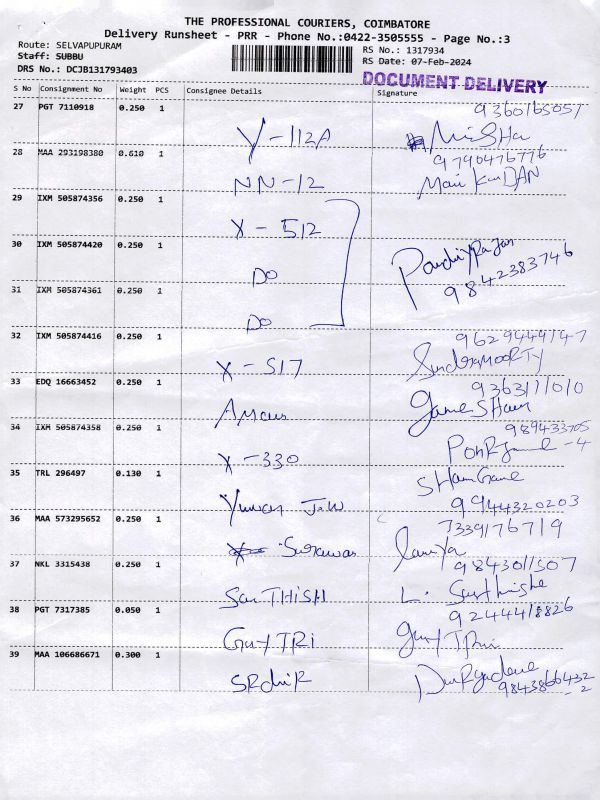 THE PROFESSIONAL COURIERS, COIMBATORE
Delivery Runsheet - PRR - Phone No.:0422-3505555 - Page No.:3
Route: SELVAPUPURAM RS No.: 1317934
Staff: SUBBU RS Date: 07-Feb-2024
DRS No.: DCJB131793403 DOCUMENT DELIVERY
S No Consignment No Weight PCS Consignee Details Signature
27 PGT 7110918 0.250 1 Y-112A 9360165051
28 MAA 293198380 0.610 1 NN-12 9790476776
29 IXM 505874356 0.250 1 X-512
30 IXM 505874420 0.250 1 DO 9842383746
31 IXM 505874361 0.250 1 DO
32 IXM 505874416 0.250 1 X-517 9629444147
33 EDQ 16663452 0.250 1 9363111010
34 IXM 505874358 0.250 1 X-330
35 TRL 296497 0.130 1 9944320203
36 MAA 573295652 0.250 1 7339176719
37 NKL 3315438 0.250 1 SaiTHISH 9843011507
38 PGT 7317385 0.050 1 GayTRi 9244418826
39 MAA 106686671 0.300 1